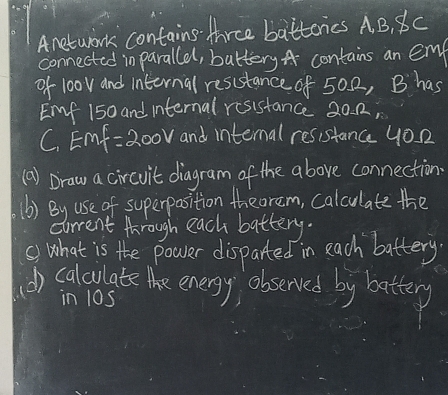 A network contains three batteries A,B,&C
connected in parallel, battery A contains an emf
of 100V and internal resistance of 50Ω, B has
Emf 150 and internal resistance 20Ω,
C, Emf=200V and internal resistance 40Ω
(a) Draw a circuit diagram of the above connection.
(b) By use of superposition theoram, calculate the
current through each battery.
c) What is the power disparted in each battery.
(d) calculate the energy observed by battery
in 10s